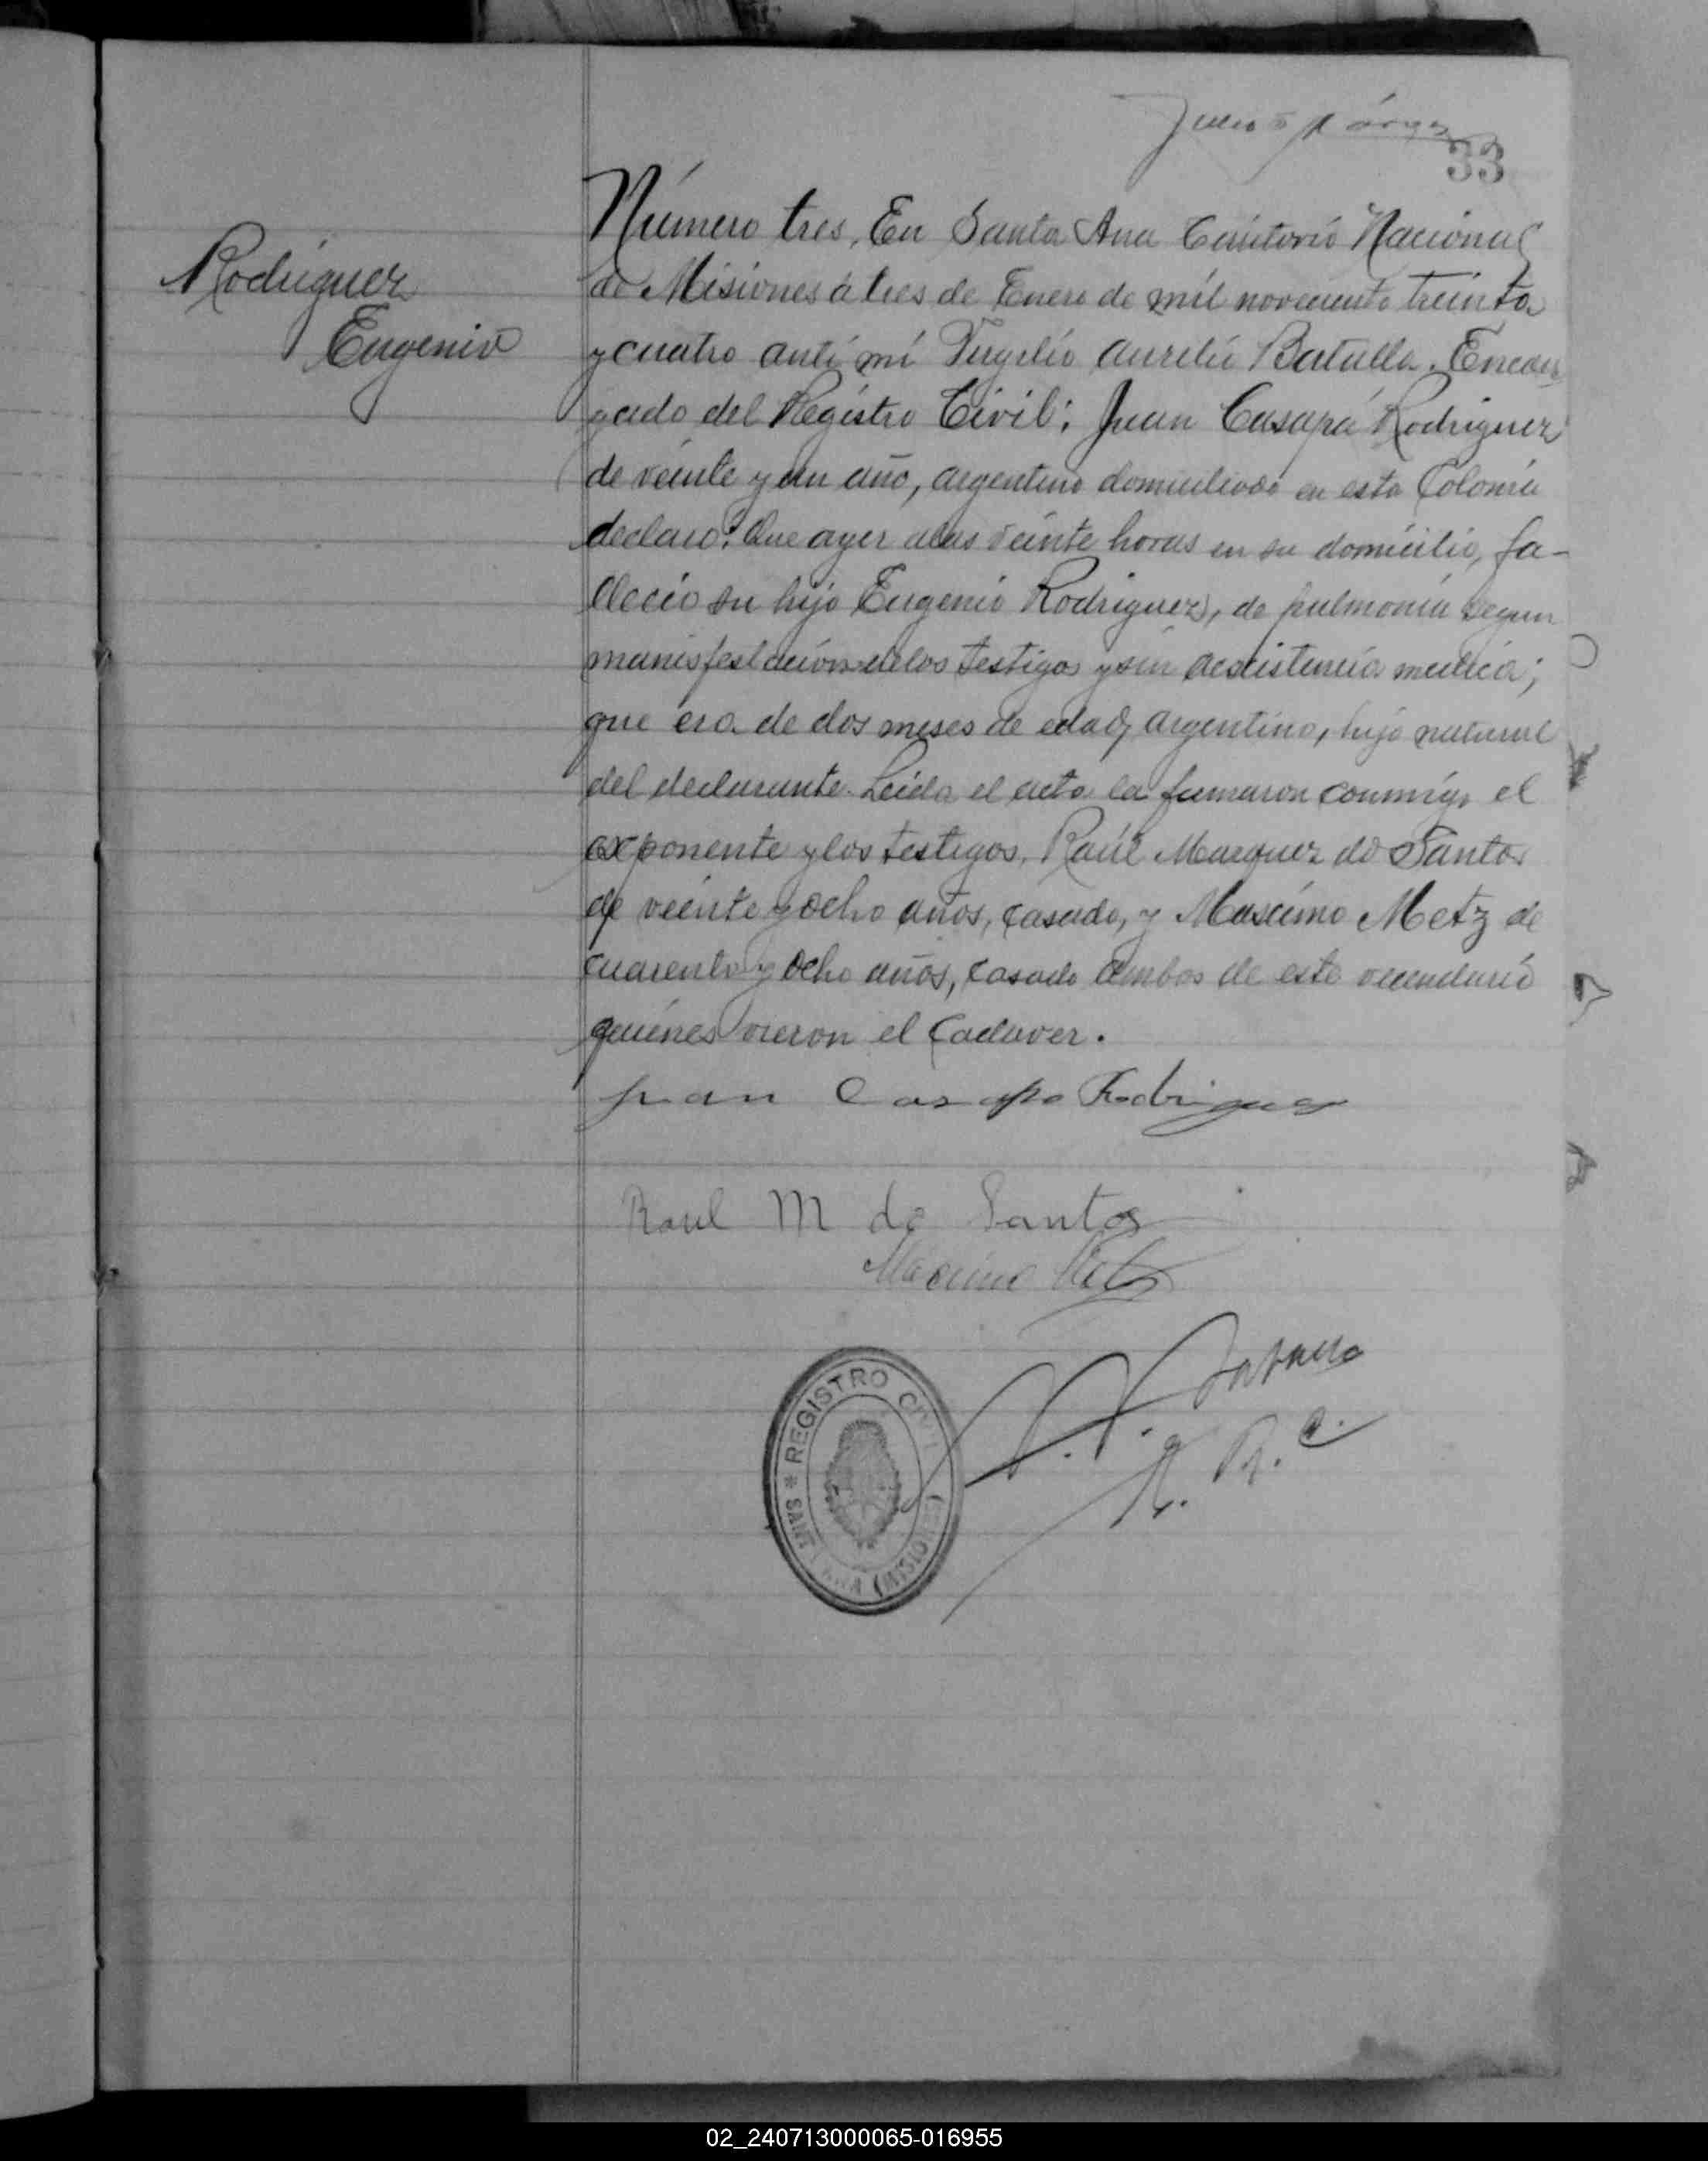 33
Rodriguez
Eugenio
Número tres, En Santa Ana Territorio Nacional
de Misiones á tres de Enero de mil novecients treinta
y cuatro anti mi Virgilio Aurelio Batalla, Encar
gado del Registro Civil; Juan Casapá Rodriguez
de veinte y un año, argentino domiciliado en esta Colonia
declaro: Que ayer alas veinte horas en su domicilio, fa-
llecio su hijo Eugenio Rodriguez, de pulmonia segun
manisfestación delos testigos y sin acsistencia medica;
que era de dos meses de edad, argentino, hijo natural
del declarante. Leida el acta la firmaron conmigo el
exponente y los testigos, Raúl Marquez do Santos
de veinte y ocho años, casado, y Mascimo Metz de
cuarenta y ocho años, casado ambos de este vecindario
quiénes vieron el Cadaver.
Juan Casapa Rodriguez
Raul M do Santos
Macimo Metz
V. A. Batalla
E. R. C.
* REGISTRO CIVIL
SANTA ANA (MISIONES)
02_240713000065-016955